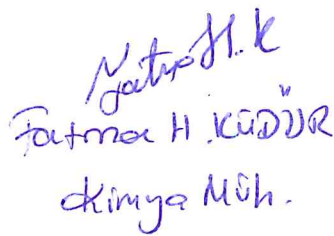 Fatma H. K
Fatma H. KÜDÜR
Kimya Müh.